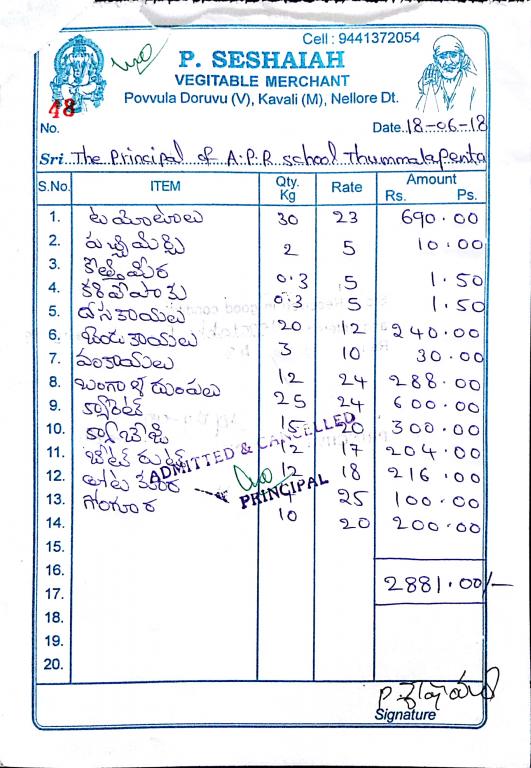 Cell : 9441372054
P. SESHAIAH
VEGITABLE MERCHANT
Povvula Doruvu (V), Kavali (M), Nellore Dt.
48
No. Date. 18-06-18
Sri The Principal of A.P.R school Thummalapenta
S.No. ITEM Qty. Kg Rate Amount Rs. Ps.
1. టమాటాలు 30 23 690.00
2. పచ్చిమిర్చి 2 5 10.00
3. కొత్తిమీర 0.3 5 1.50
4. కరివేపాకు 0.3 5 1.50
5. దోసకాయలు 20 12 240.00
6. బెండకాయలు 3 10 30.00
7. వంకాయలు 12 24 288.00
8. బంగాళదుంపలు 25 24 600.00
9. క్యారెట్ 15 20 300.00
10. క్యాబేజి 12 17 204.00
11. బీట్ రూట్ 12 18 216.00
12. తోటకూర 25 100.00
13. గోంగూర 10 20 200.00
14.
15.
16. 2881.00/-
17.
18.
19.
20.
ADMITTED & CANCELLED
PRINCIPAL
Signature